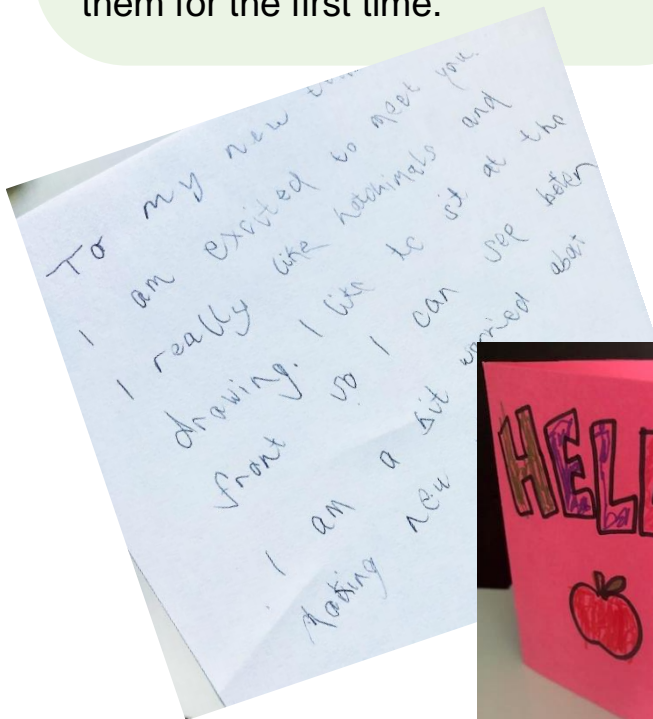 them for the first time.
To my new
I am exsited to meet you.
I really like hatchimals and
drawing. I like to sit at the
front so I can see beter
I am a bit worried about
making new
HELL